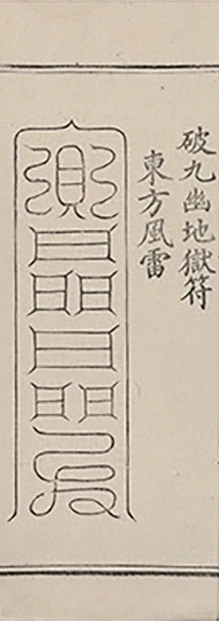 破九幽地獄符
東方風雷